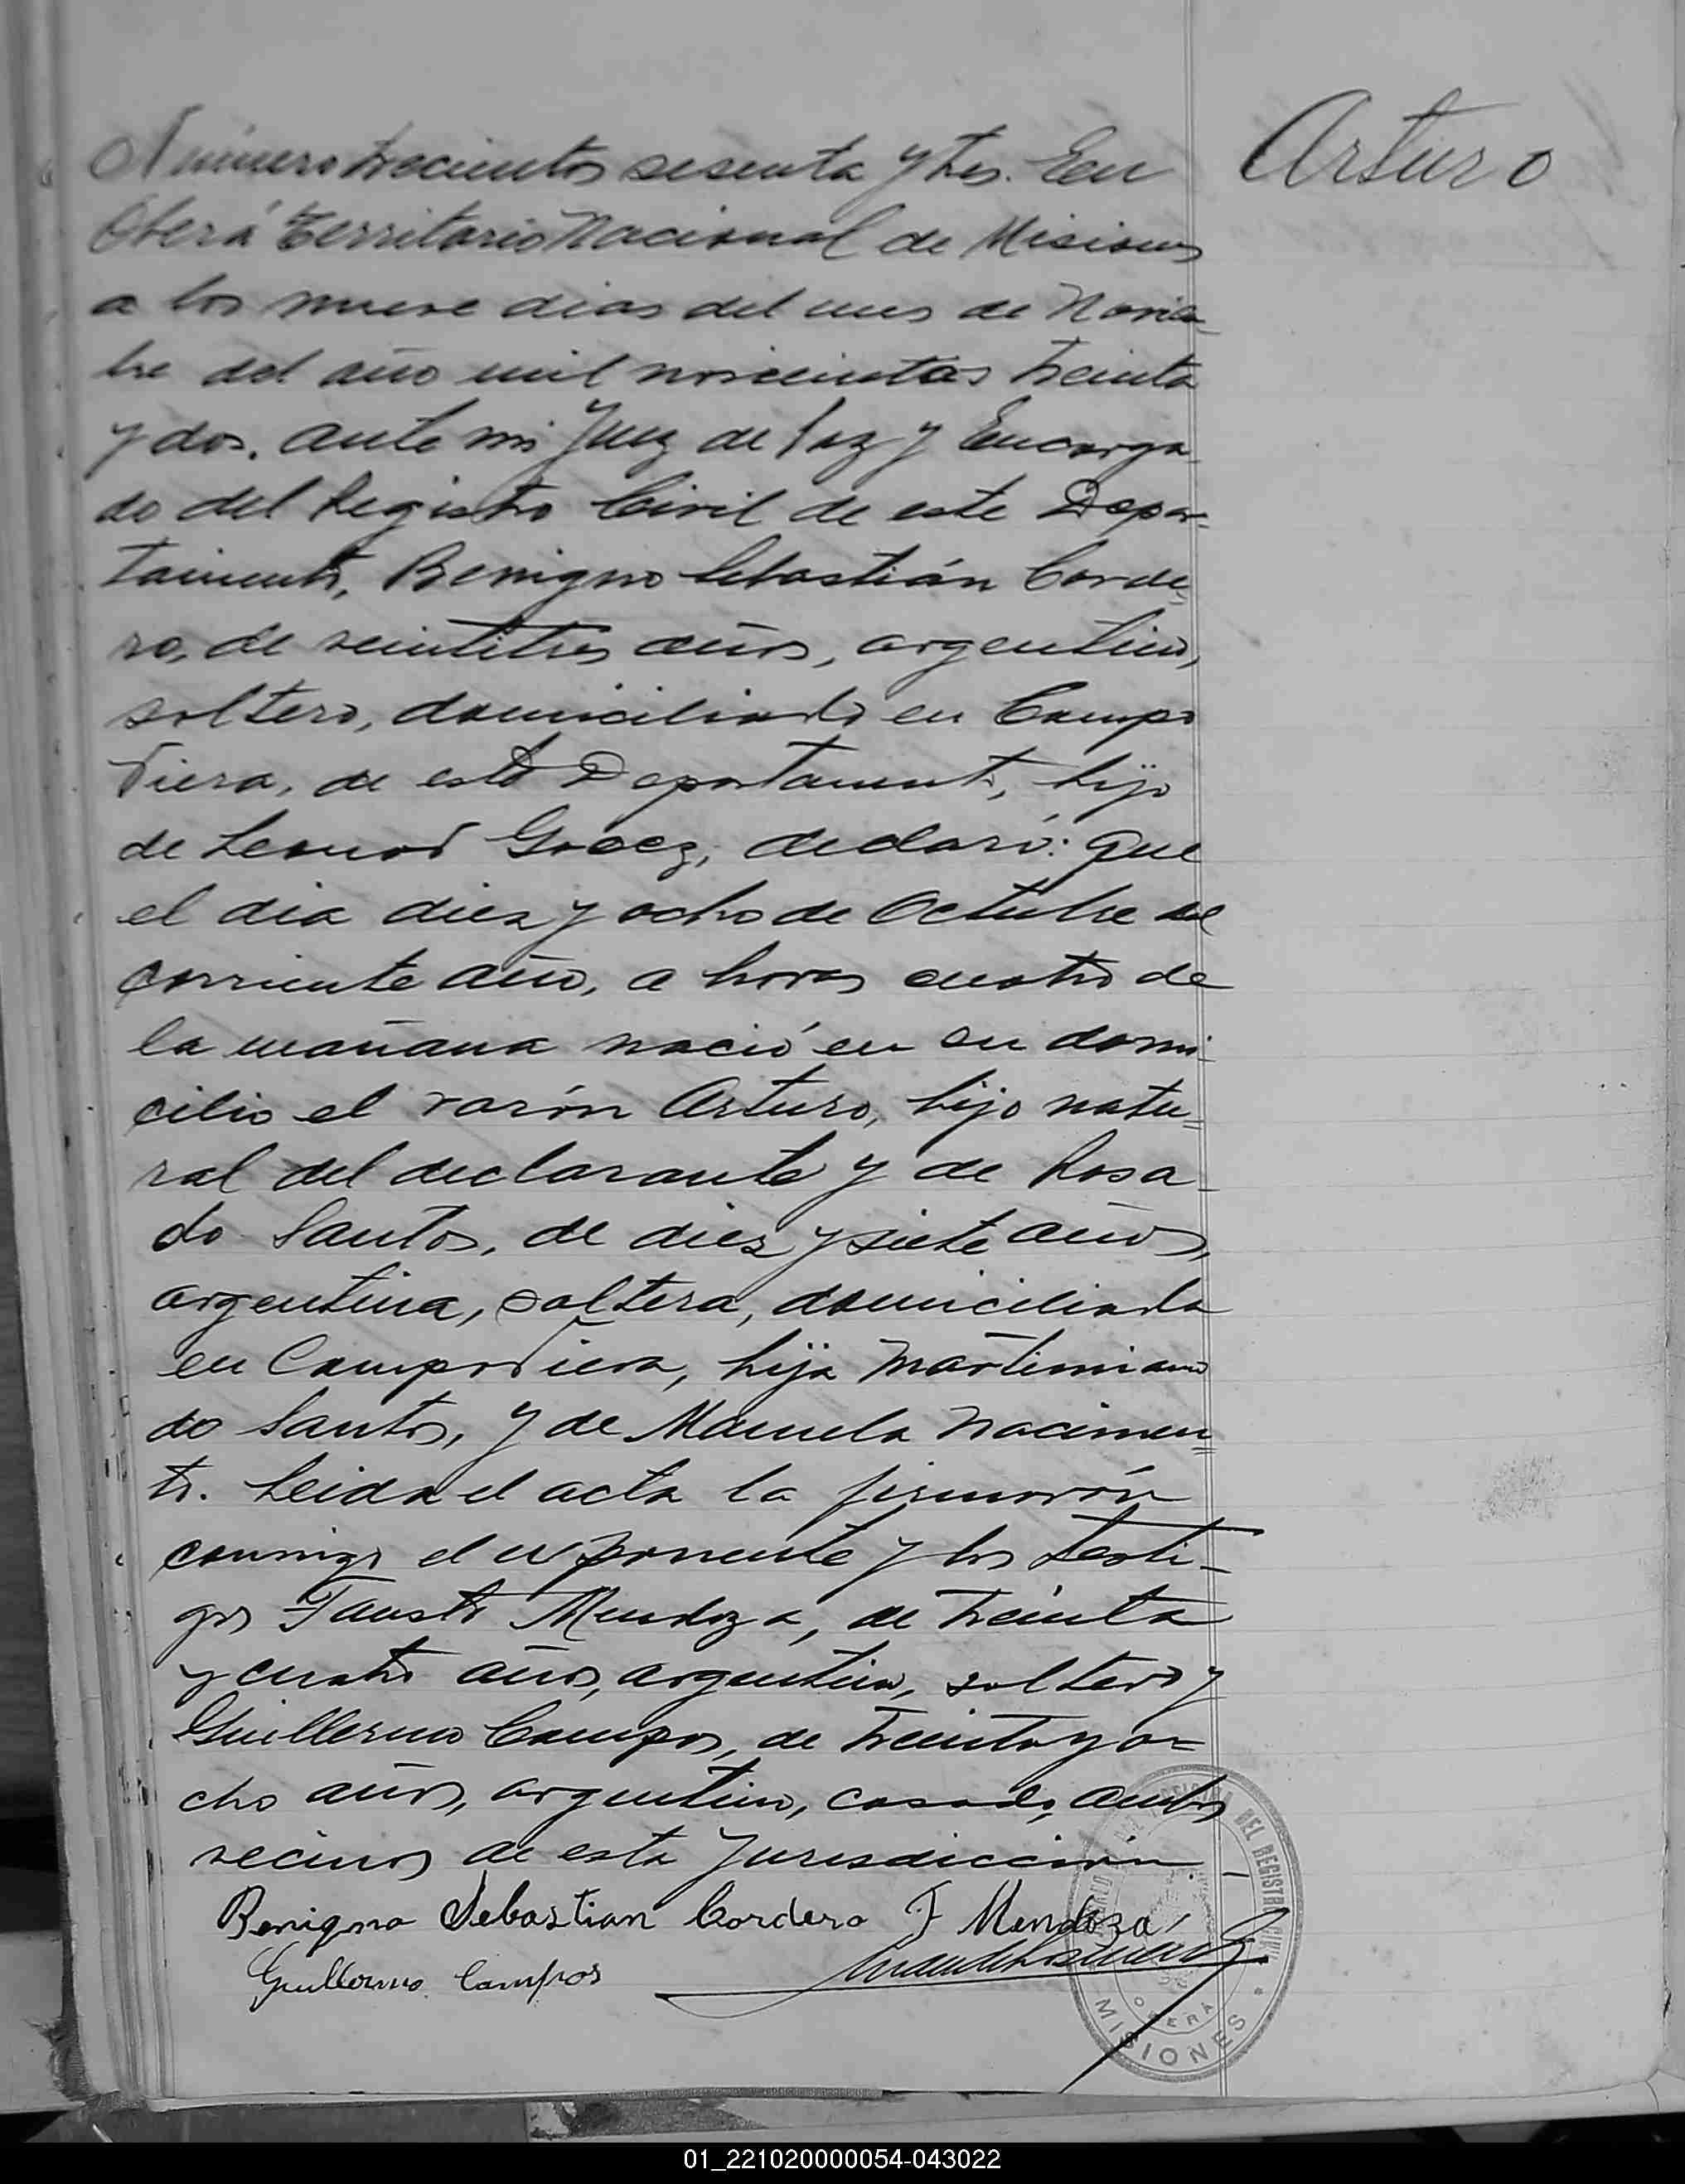 Arturo
Número trecientos sesenta y tres. En
Oberá Territorio Nacional de Misiones
a los nueve dias del mes de Noviem-
bre del año mil novecientos treinta
y dos, ante mi Juez de Paz y Encarga-
do del Registro Civil de este Depar-
tamento, Benigno Sebastián Corde-
ro, de veintitres años, argentino,
soltero, domiciliado en Campo
Viera, de este Departamento, hijo
de Leonor declaró: Que
el dia diez y ocho de Octubre del
corriente año, a horas cuatro de
la mañana nació en su domi-
cilio el varón Arturo, hijo natu-
ral del declarante y de Rosa
do Santos, de diez y siete años,
argentina, soltera, domiciliada
en Campo Viera, hija Martimiano
do Santos, y de Manuela Nacimen-
to. Leida el acta la firmarón
conmigo el exponente y los testi-
gos Fausto Mendoza, de treinta
y cuatro años, argentino, soltero y
Guillermo Campos, de treinta y o-
cho años, argentino, casado, ambos
vecinos de esta Jurisdicción.-
Benigno Sebastian Cordero F Mendoza
Guillermo Campos
DEL REGISTRO CIVIL
OBERA
MISIONES
01_221020000054-043022